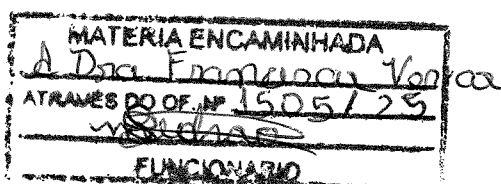 MATERIA ENCAMINHADA
A Dra Francisca Vanica
ATRAVÉS DO OF. Nº 1505/25
FUNCIONARIO